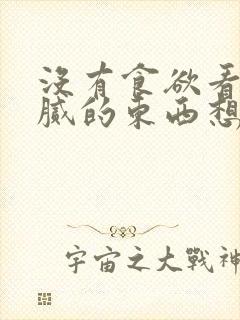 没有食欲看
腻的东西想
宇宙之大戰神